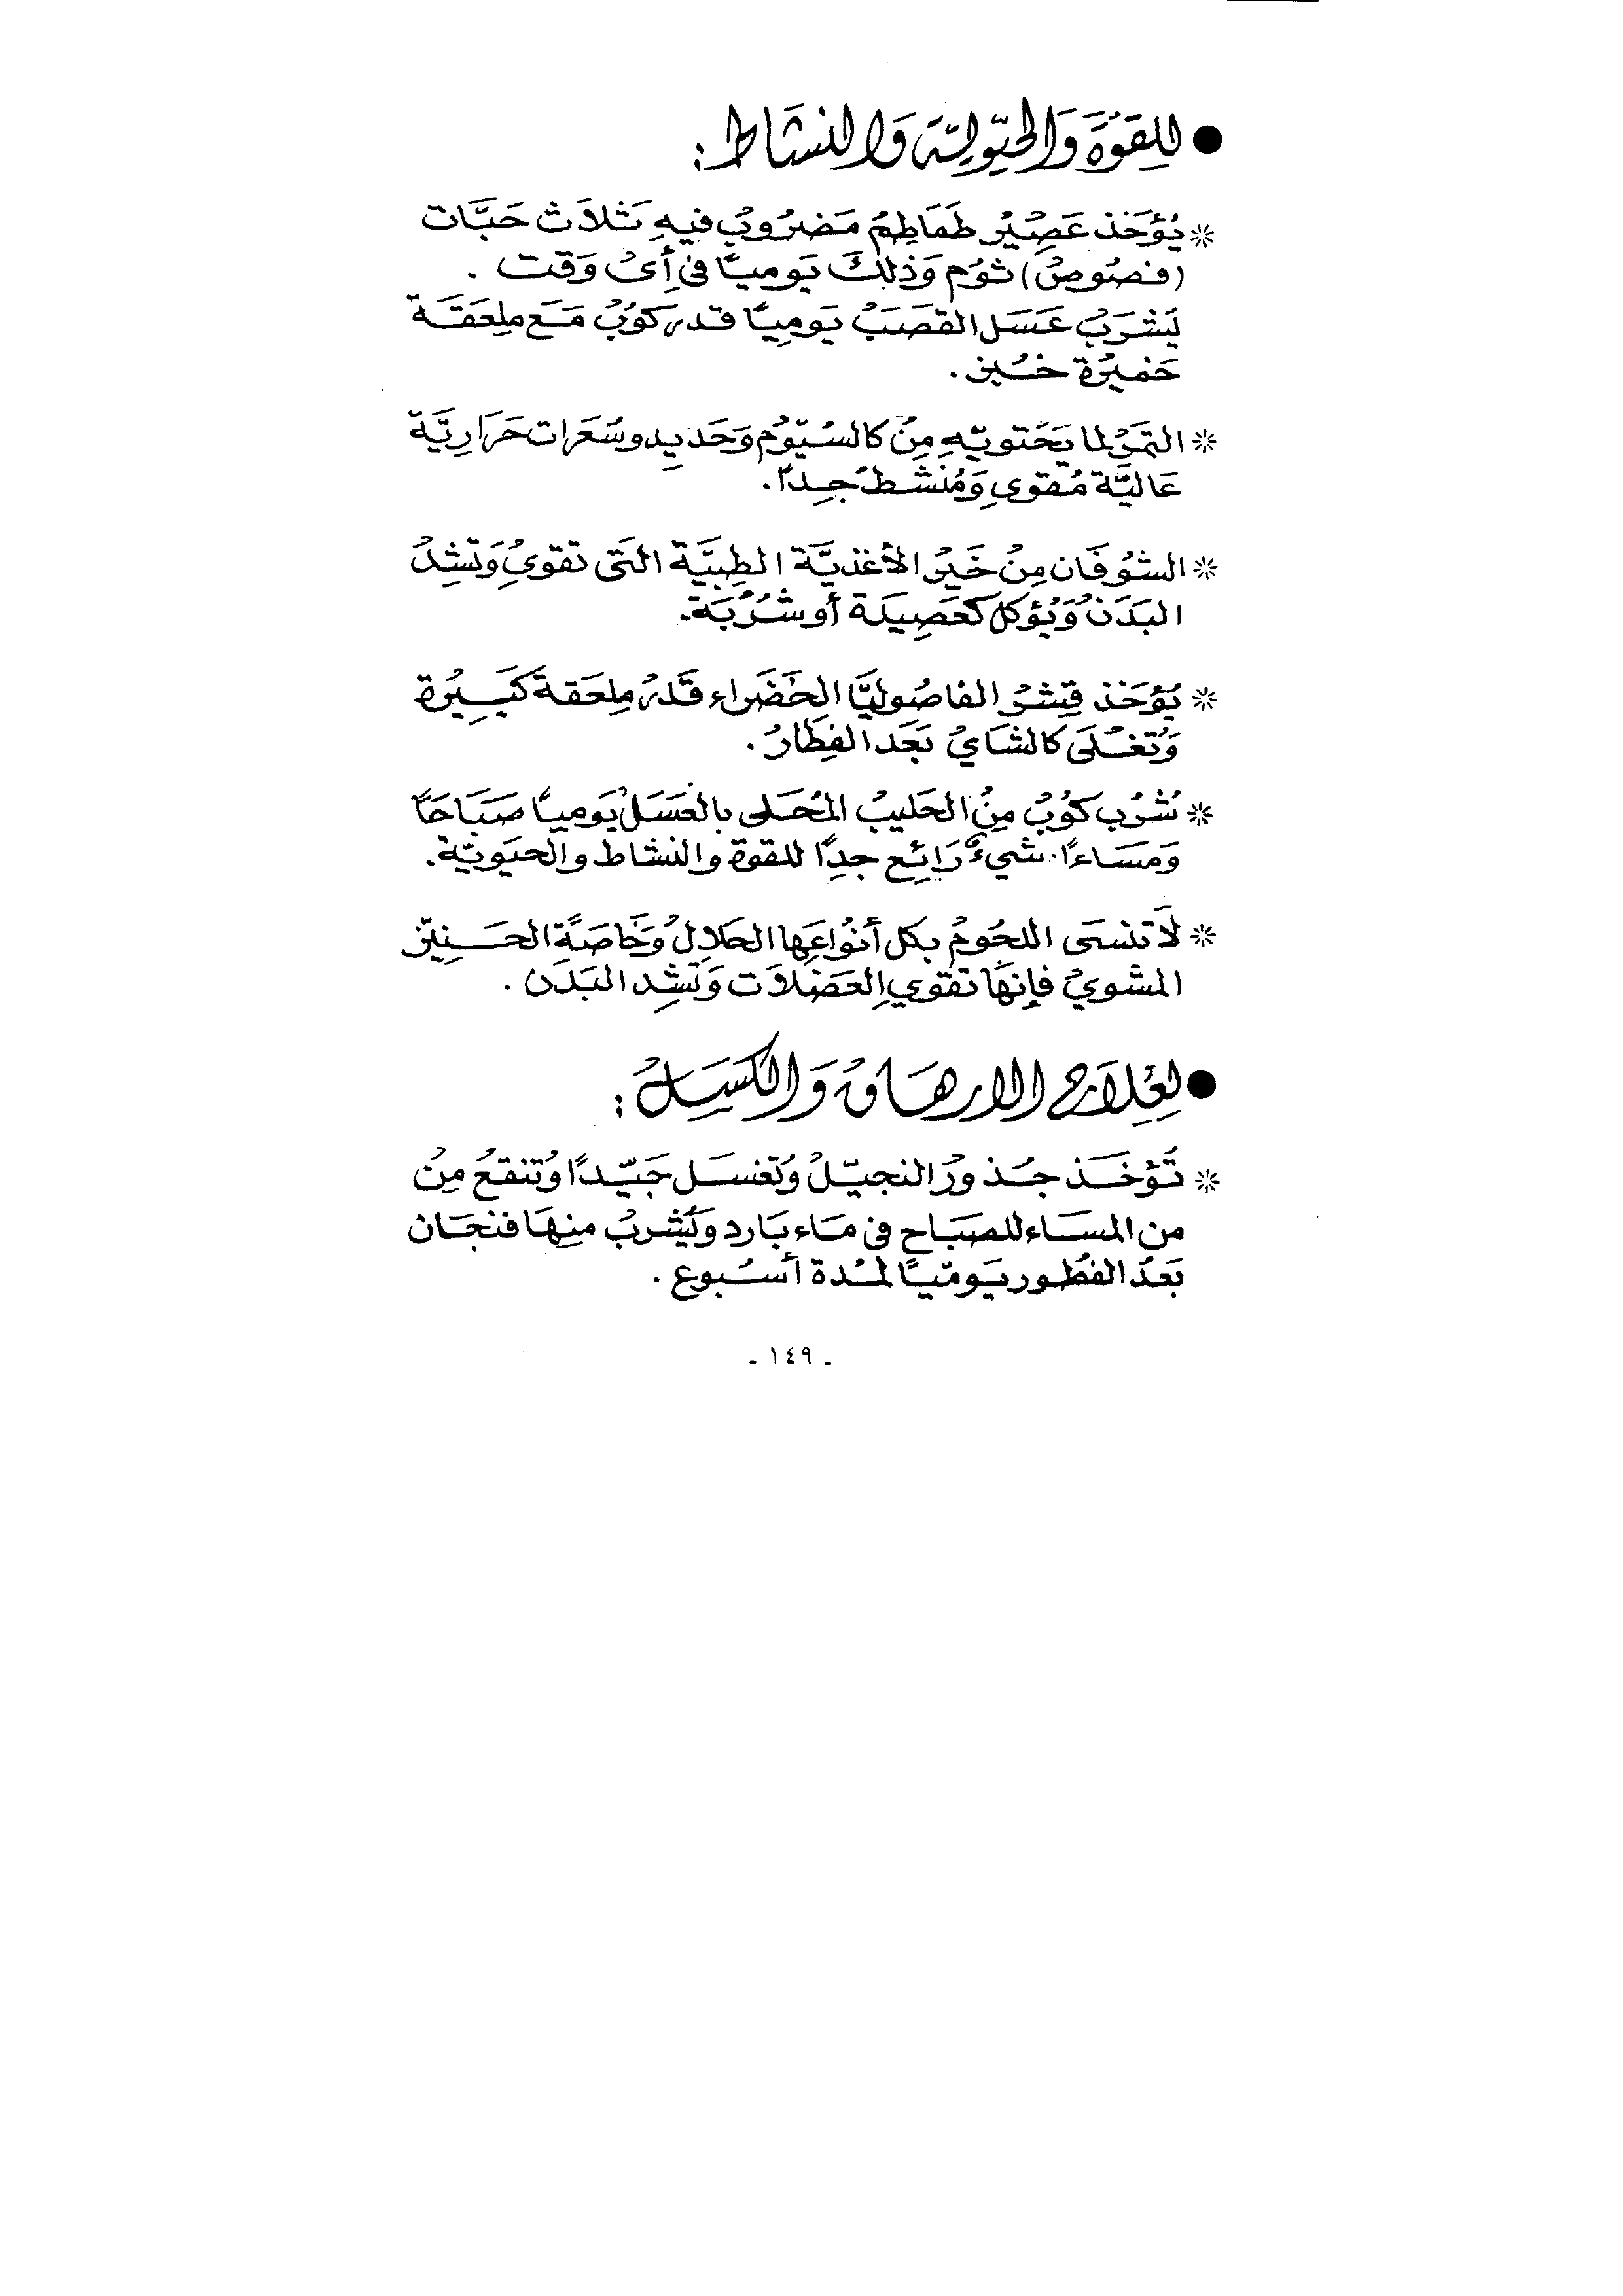 ● للقوة والحيوية والنشاط :
* يُؤخَذ عَصِيْر طَمَاطِمْ مَضرُوبْ فيهِ ثَلاَث حَبَّات
(فصُوصْ) ثوُم وَذلِكَ يَوميًا في أِىْ وَقت .
يَشرَبْ عَسَل القصَبْ يَومِيًا قدر كوُبْ مَع ملِعَقَة
خَميْرة خُبز .
* التمَرْ لما يَحَتويهِ مِنْ كالسيُوُم وَحَديدِ وسُعَرات حَرَارِيَّة
عَاليَّة مُقوي وَمُنشط جِدًا .
* الشوُفَان مِنْ خَيْر الأغذيَّة الطِبيَّة التَى تقويْ وَتشِدْ
البَدَنْ وَيُؤكل كعَصِيدَة أو شُرْبَة .
* يُؤخَذ قِشرْ الفاصُوليَّا الخَضَراء قَدرْ ملِعَقة كَبِيْرة
وَتُغْلَى كالشَايْ بَعَد الفِطَارْ .
* شُرْب كوُبْ مِنْ الحَليبْ المُحَلى بالعَسَلْ يَوميًا صَبَاحًا
وَمسَاءًا . شيءٌ رَائِع جدًا للقوة والنشاط والحيَويّة .
* لاَ تنسَى اللحُومْ بكل أنوْاعِها الحَلالْ وَخَاصَةً الحَنِيْن
المشويْ فإنهَا تقَوي العَضَلاَت وَتشِد البَدَن .
● لعِلاَج الارهَاق وَالكَسَلْ :
* تُؤخَذ جُذورْ النجيّلْ وَتغسَل جَيّدًا وَتُنقعْ مِنْ
من المسَاء للصبَاح في مَاء بَارد وَيَشربْ منِهَا فنجَان
بَعَدْ الفطُور يَوميًا لمْدة أسْبوع .
- ١٤٩ -